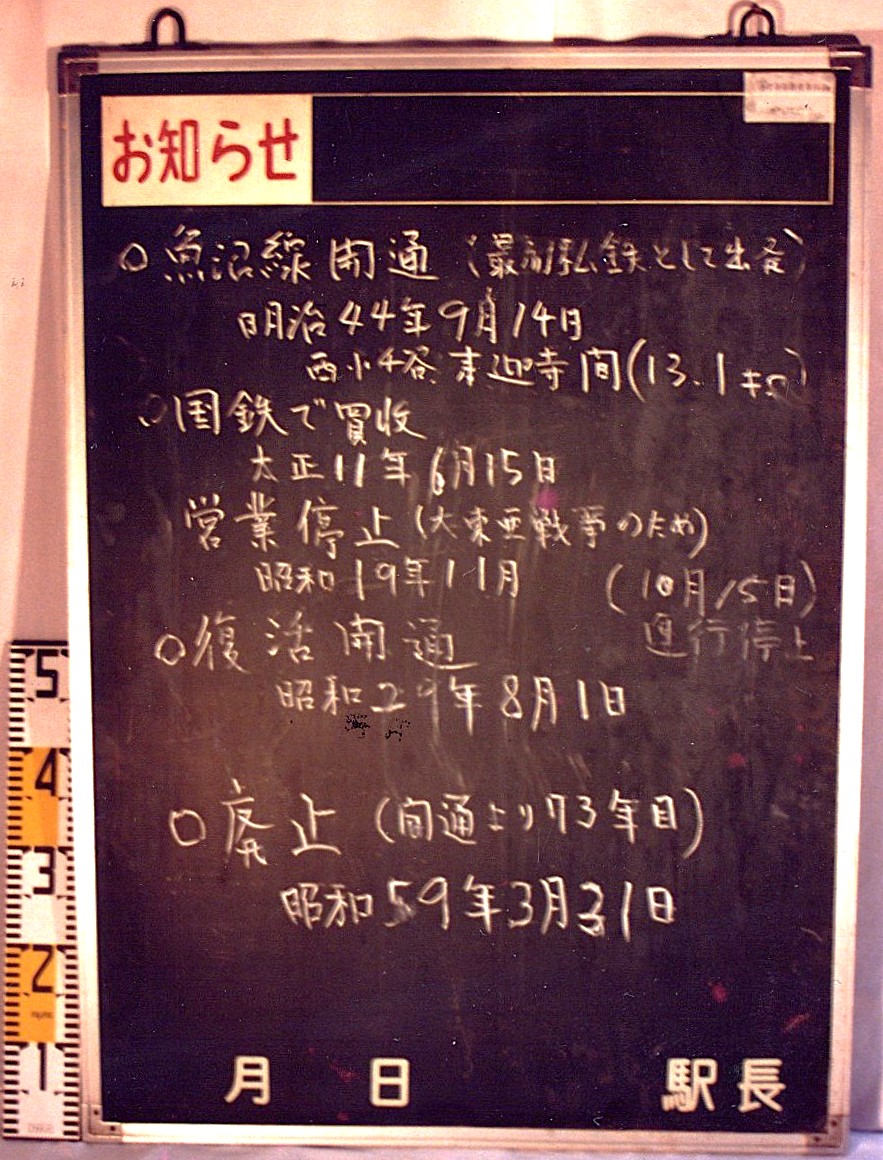 お知らせ
○魚沼線開通(最初私鉄として出発)
明治44年9月14日
西小千谷 来迎寺間(13.1キロ)
○国鉄で買収
大正11年6月15日
営業停止(大東亜戦争のため)
昭和19年11月 (10月15日)
運行停止
○復活開通
昭和29年8月1日
○廃止(開通より73年目)
昭和59年3月31日
月 日 駅長
5
4
3
2
1